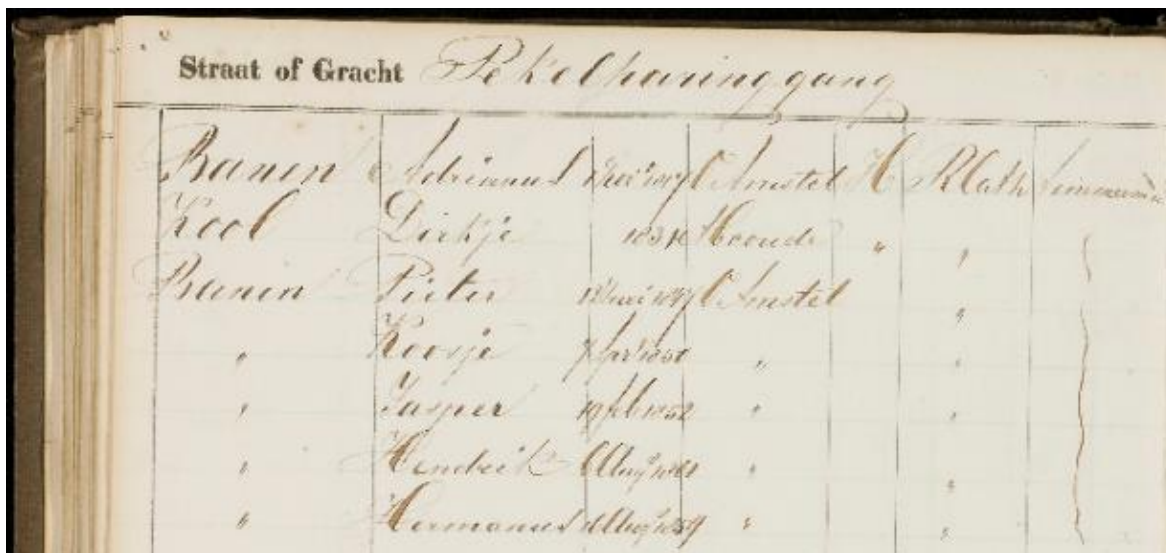 Straat of Gracht Pekelharinggang
Banen Adrianus O Amstel H R Cath Timmerman
Kool Dirkje 1831 " "
Banen Pieter 18 Juni 1847 O Amstel "
" Koosje 7 Apr 1850 " "
" Jasper 19 feb 1852 " "
" Hendrik Aug " "
" Hermanus Aug 1859 " "